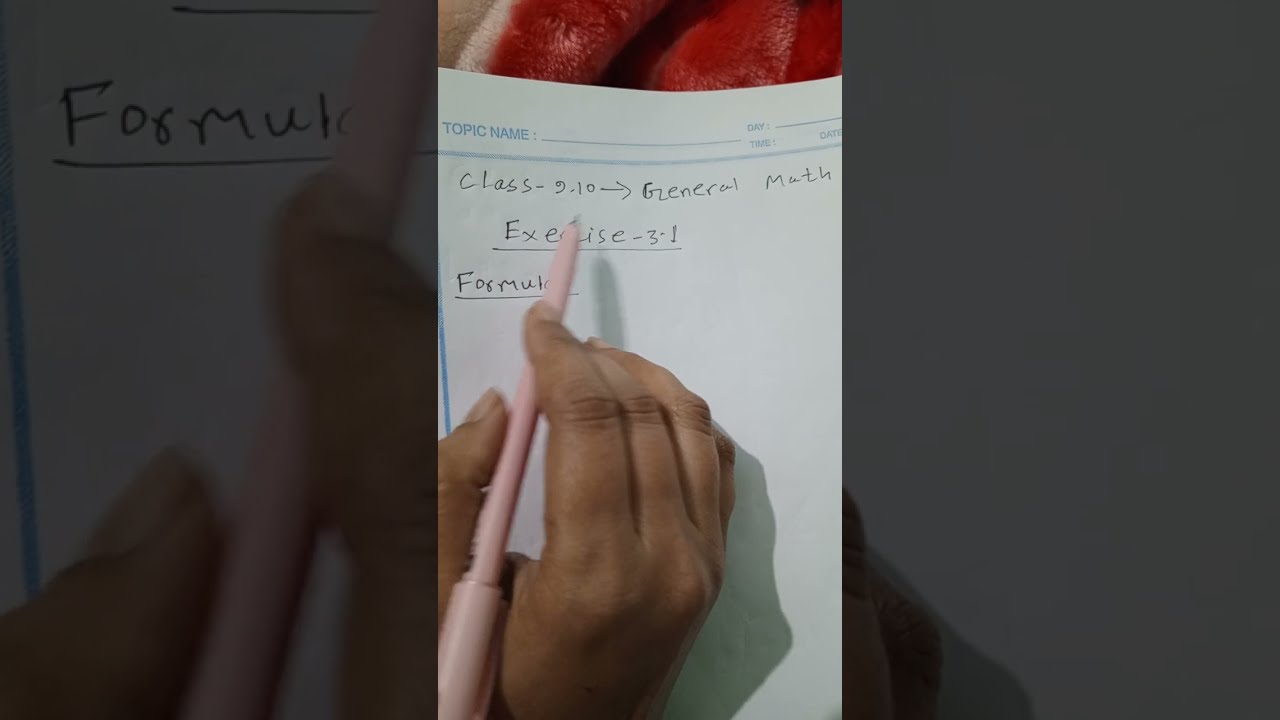 TOPIC NAME :
DAY :
TIME :
DATE
Class - 9.10 → General Math
Exercise - 3.1
Formula